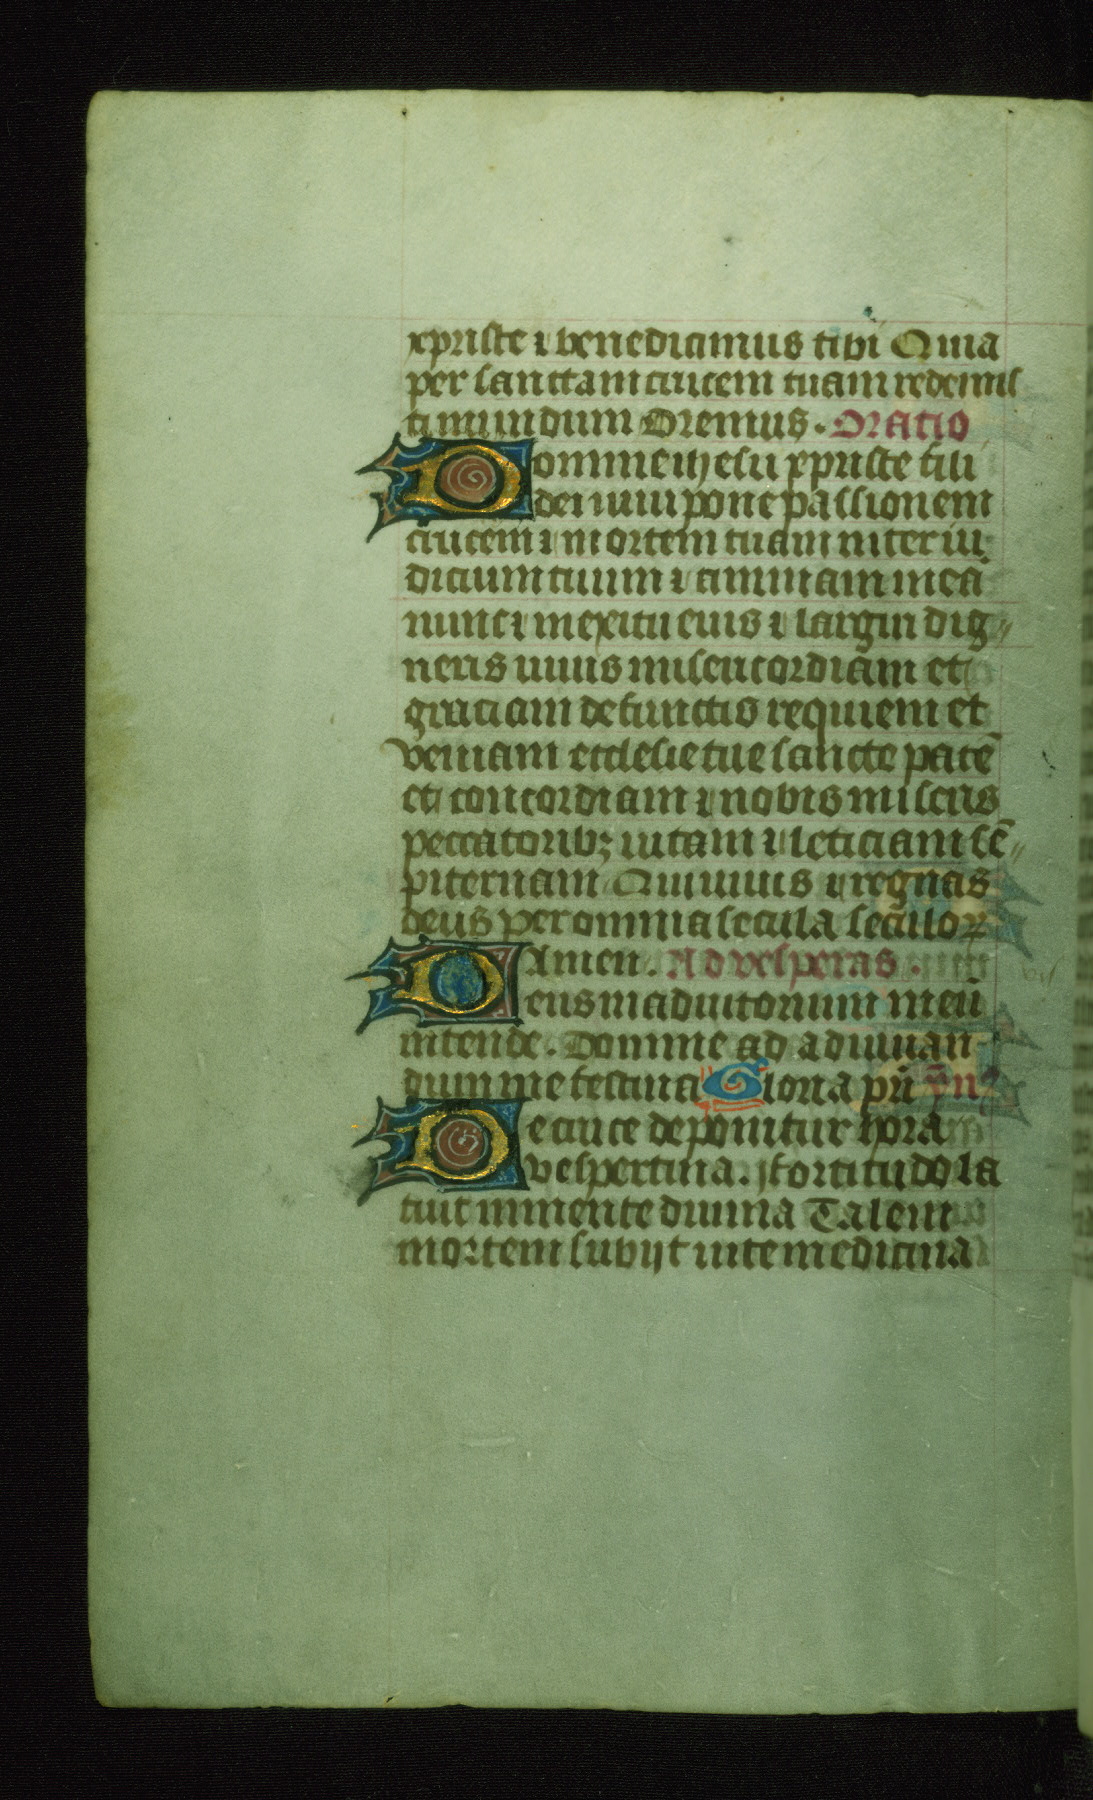 xpriste ⁊ benedicimus tibi Quia
per sanctam crucem tuam redemis
ti mundum Oremus. Oratio
Domine ihesu xpriste fili
dei uiui pone passionem
crucem ⁊ mortem tuam inter iu
dicium tuum ⁊ animam meā
nunc ⁊ in exitu eius ⁊ largiri dig
neris uiuis misericordiam et
graciam defunctis requiem et
veniam ecclesie tue sancte pacē
et concordiam ⁊ nobis miseris
peccatoribꝫ uitam ⁊ leticiam sē
piternam Qui uiuis ⁊ regnas
deus per omnia secula seculoꝝ
Amen. Ad vesperas.
Deus in adiutorium meū
intende. Domine ad adiuuan
dum me festina Gloria pr̄i ẏm̄
De cruce deponitur hora
vespertina. fortitudo la
tuit in mente diuina Talem
mortem subijt uite medicina